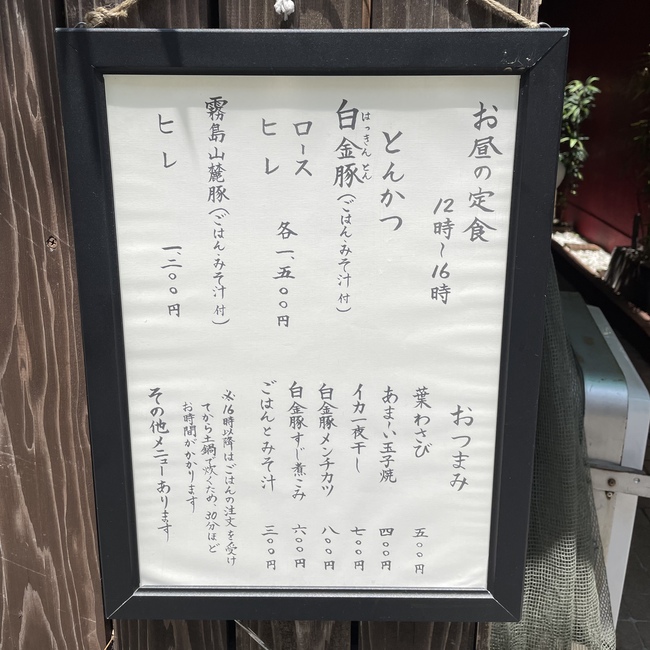 お昼の定食
12時〜16時
とんかつ
はっきんとん
白金豚(ごはん・みそ汁付)
ロース
ヒレ
各一、五〇〇円
霧島山麓豚(ごはん・みそ汁付)
ヒレ
一、二〇〇円
おつまみ
葉わさび 五〇〇円
あま〜い玉子焼 四〇〇円
イカ一夜干し 七〇〇円
白金豚メンチカツ 八〇〇円
白金豚すじ煮こみ 六〇〇円
ごはんとみそ汁 三〇〇円
※16時以降はごはんの注文を受け
てから土鍋で炊くため、30分ほど
お時間がかかります
その他メニューあります